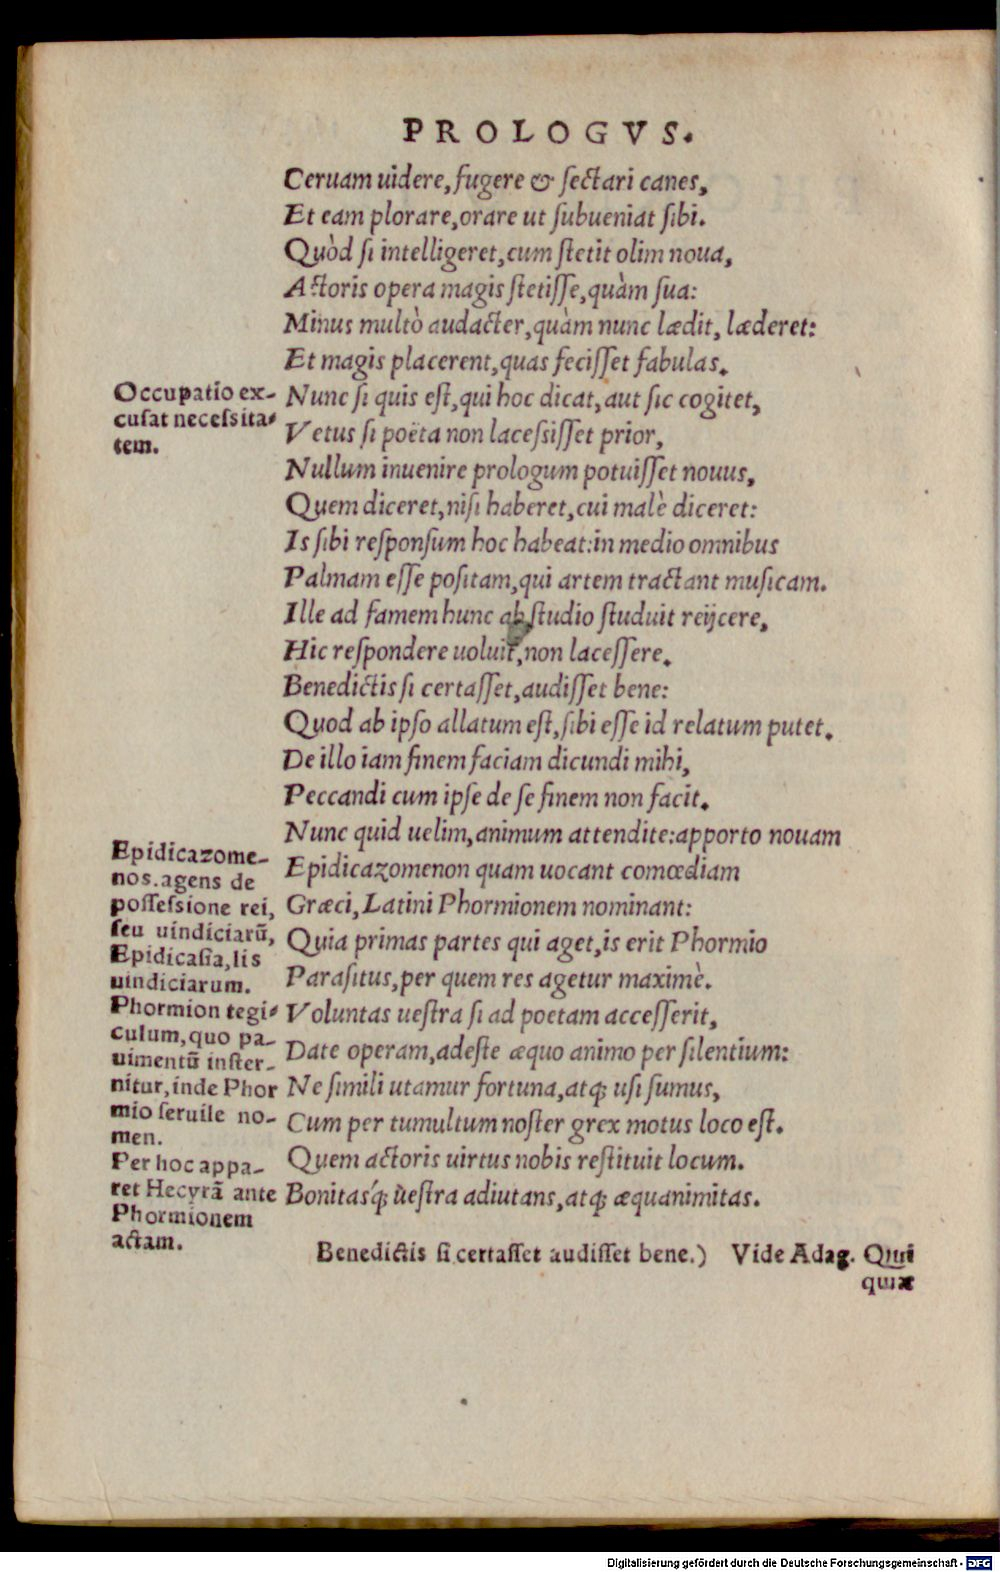 PROLOGVS.
Ceruam uidere, fugere & sectari canes,
Et eam plorare, orare ut subueniat sibi.
Quòd si intelligeret, cum stetit olim noua,
Actoris opera magis stetisse, quàm sua:
Minus multò audacter, quàm nunc lædit, læderet:
Et magis placerent, quas fecisset fabulas.
Occupatio ex-
cusat necessita-
tem.
Nunc si quis est, qui hoc dicat, aut sic cogitet,
Vetus si poëta non lacessisset prior,
Nullum inuenire prologum potuisset nouus,
Quem diceret, nisi haberet, cui malè diceret:
Is sibi responsum hoc habeat: in medio omnibus
Palmam esse positam, qui artem tractant musicam.
Ille ad famem hunc ab studio studuit reijcere,
Hic respondere uoluit, non lacessere.
Benedictis si certasset, audisset bene:
Quod ab ipso allatum est, sibi esse id relatum putet.
De illo iam finem faciam dicundi mihi,
Peccandi cum ipse de se finem non facit.
Nunc quid uelim, animum attendite: apporto nouam
Epidicazomenon quam uocant comœdiam
Græci, Latini Phormionem nominant:
Quia primas partes qui aget, is erit Phormio
Parasitus, per quem res agetur maximè.
Voluntas uestra si ad poetam accesserit,
Date operam, adeste æquo animo per silentium:
Ne simili utamur fortuna, atq; usi sumus,
Cum per tumultum noster grex motus loco est.
Quem actoris uirtus nobis restituit locum.
Bonitasq́; ùestra adiutans, atq; æquanimitas.
Epidicazome-
nos. agens de
possessione rei,
seu uindiciarũ,
Epidicasia, lis
uindiciarum.
Phormion tegi-
culum, quo pa-
uimentũ inster-
nitur, inde Phor
mio seruile no-
men.
Per hoc appa-
ret Hecyrã ante
Phormionem
actam.
Benedictis si certasset audisset bene.) Vide Adag. Qui
quæ
Digitalisierung gefördert durch die Deutsche Forschungsgemeinschaft - DFG